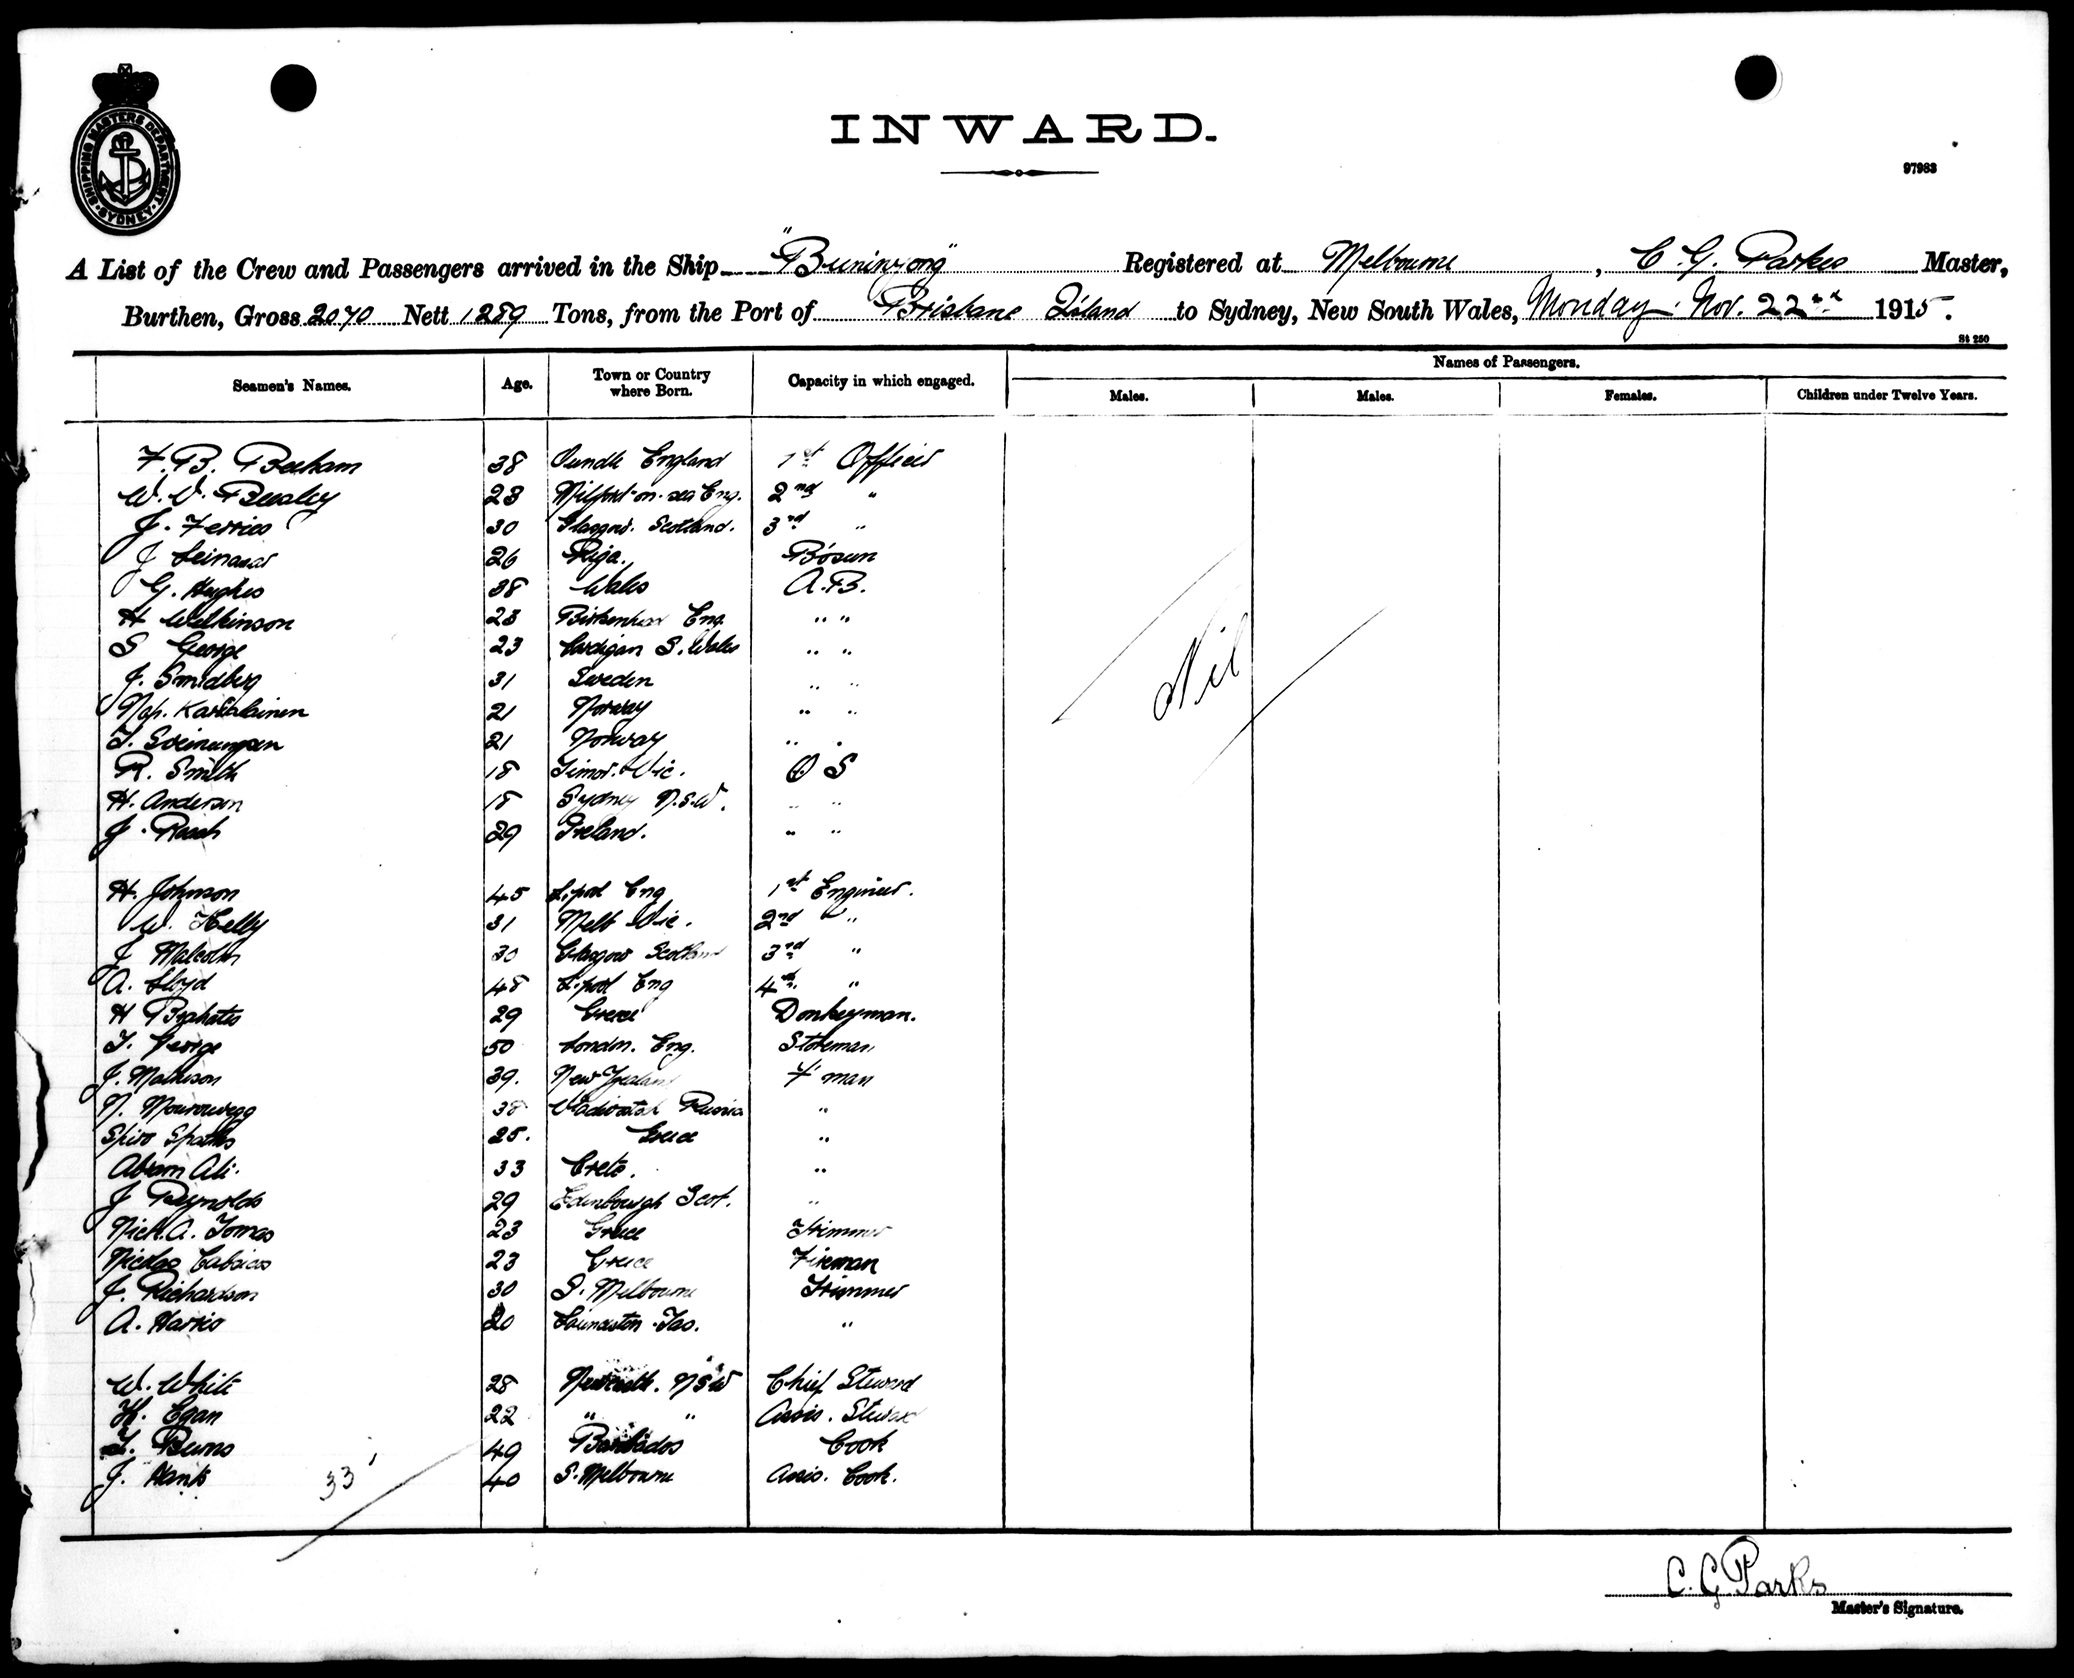 SHIPPING MASTERS DEPARTMENT
SYDNEY
INWARD.
97983
A List of the Crew and Passengers arrived in the Ship "Buninyong" Registered at Melbourne, C. G. Parkes Master,
Burthen, Gross 2070 Nett 1289 Tons, from the Port of Brisbane Q'land to Sydney, New South Wales, Monday Nov. 22nd 1915.
St 250
Seamen's Names. Age. Town or Country where Born. Capacity in which engaged. Names of Passengers.
Males. Males. Females. Children under Twelve Years.
F. B. Beeham 38 Oundle England 1st Officer
W. V. Beesley 23 Milford-on-sea Eng. 2nd "
J. Ferries 30 Glasgow. Scotland. 3rd "
J 26 Riga. Bosun
G. Hughes 38 Wales A.B.
H Wilkinson 23 Birkenhead Eng. " "
S George 23 Cardigan S. Wales " "
J. Smidberg 31 Sweden " "
Nap. Karialainen 21 Norway " "
T. 21 Norway " "
R. Smith 18 Timor. Vic. O S
H. Anderson 18 Sydney N.S.W. " "
J. Roach 29 Ireland. " "
H. Johnson 45 L.pool Eng 1st Engineer.
W. Kelly 31 Melb Vic. 2nd "
J Malcolm 30 Glasgow Scotland 3rd "
A. Lloyd 48 L.pool Eng 4th "
H 29 Greece Donkeyman.
T. George 50 London. Eng. Storeman
J. Mathison 39. New Zealand F man
N. 38 Vladivostok Russia "
Spiro Spathis 25. Greece "
Abram Ali. 33 Crete. "
J Reynolds 29 Edinborough Scot. "
Nick. A. Tomas 23 Greece Trimmer
Nicholas 23 Greece Fireman
J. Richardson 30 S. Melbourne Trimmer
A. Harris 20 Launceston. Tas. "
W. White 28 Newcastle. NSW Chief Steward
H. Egan 22 " " Assis. Steward
T. Burns 49 Barbados Cook
J. Hanks 40 S. Melbourne Assis. Cook.
Nil
33
C. G Parkes
Master's Signature.